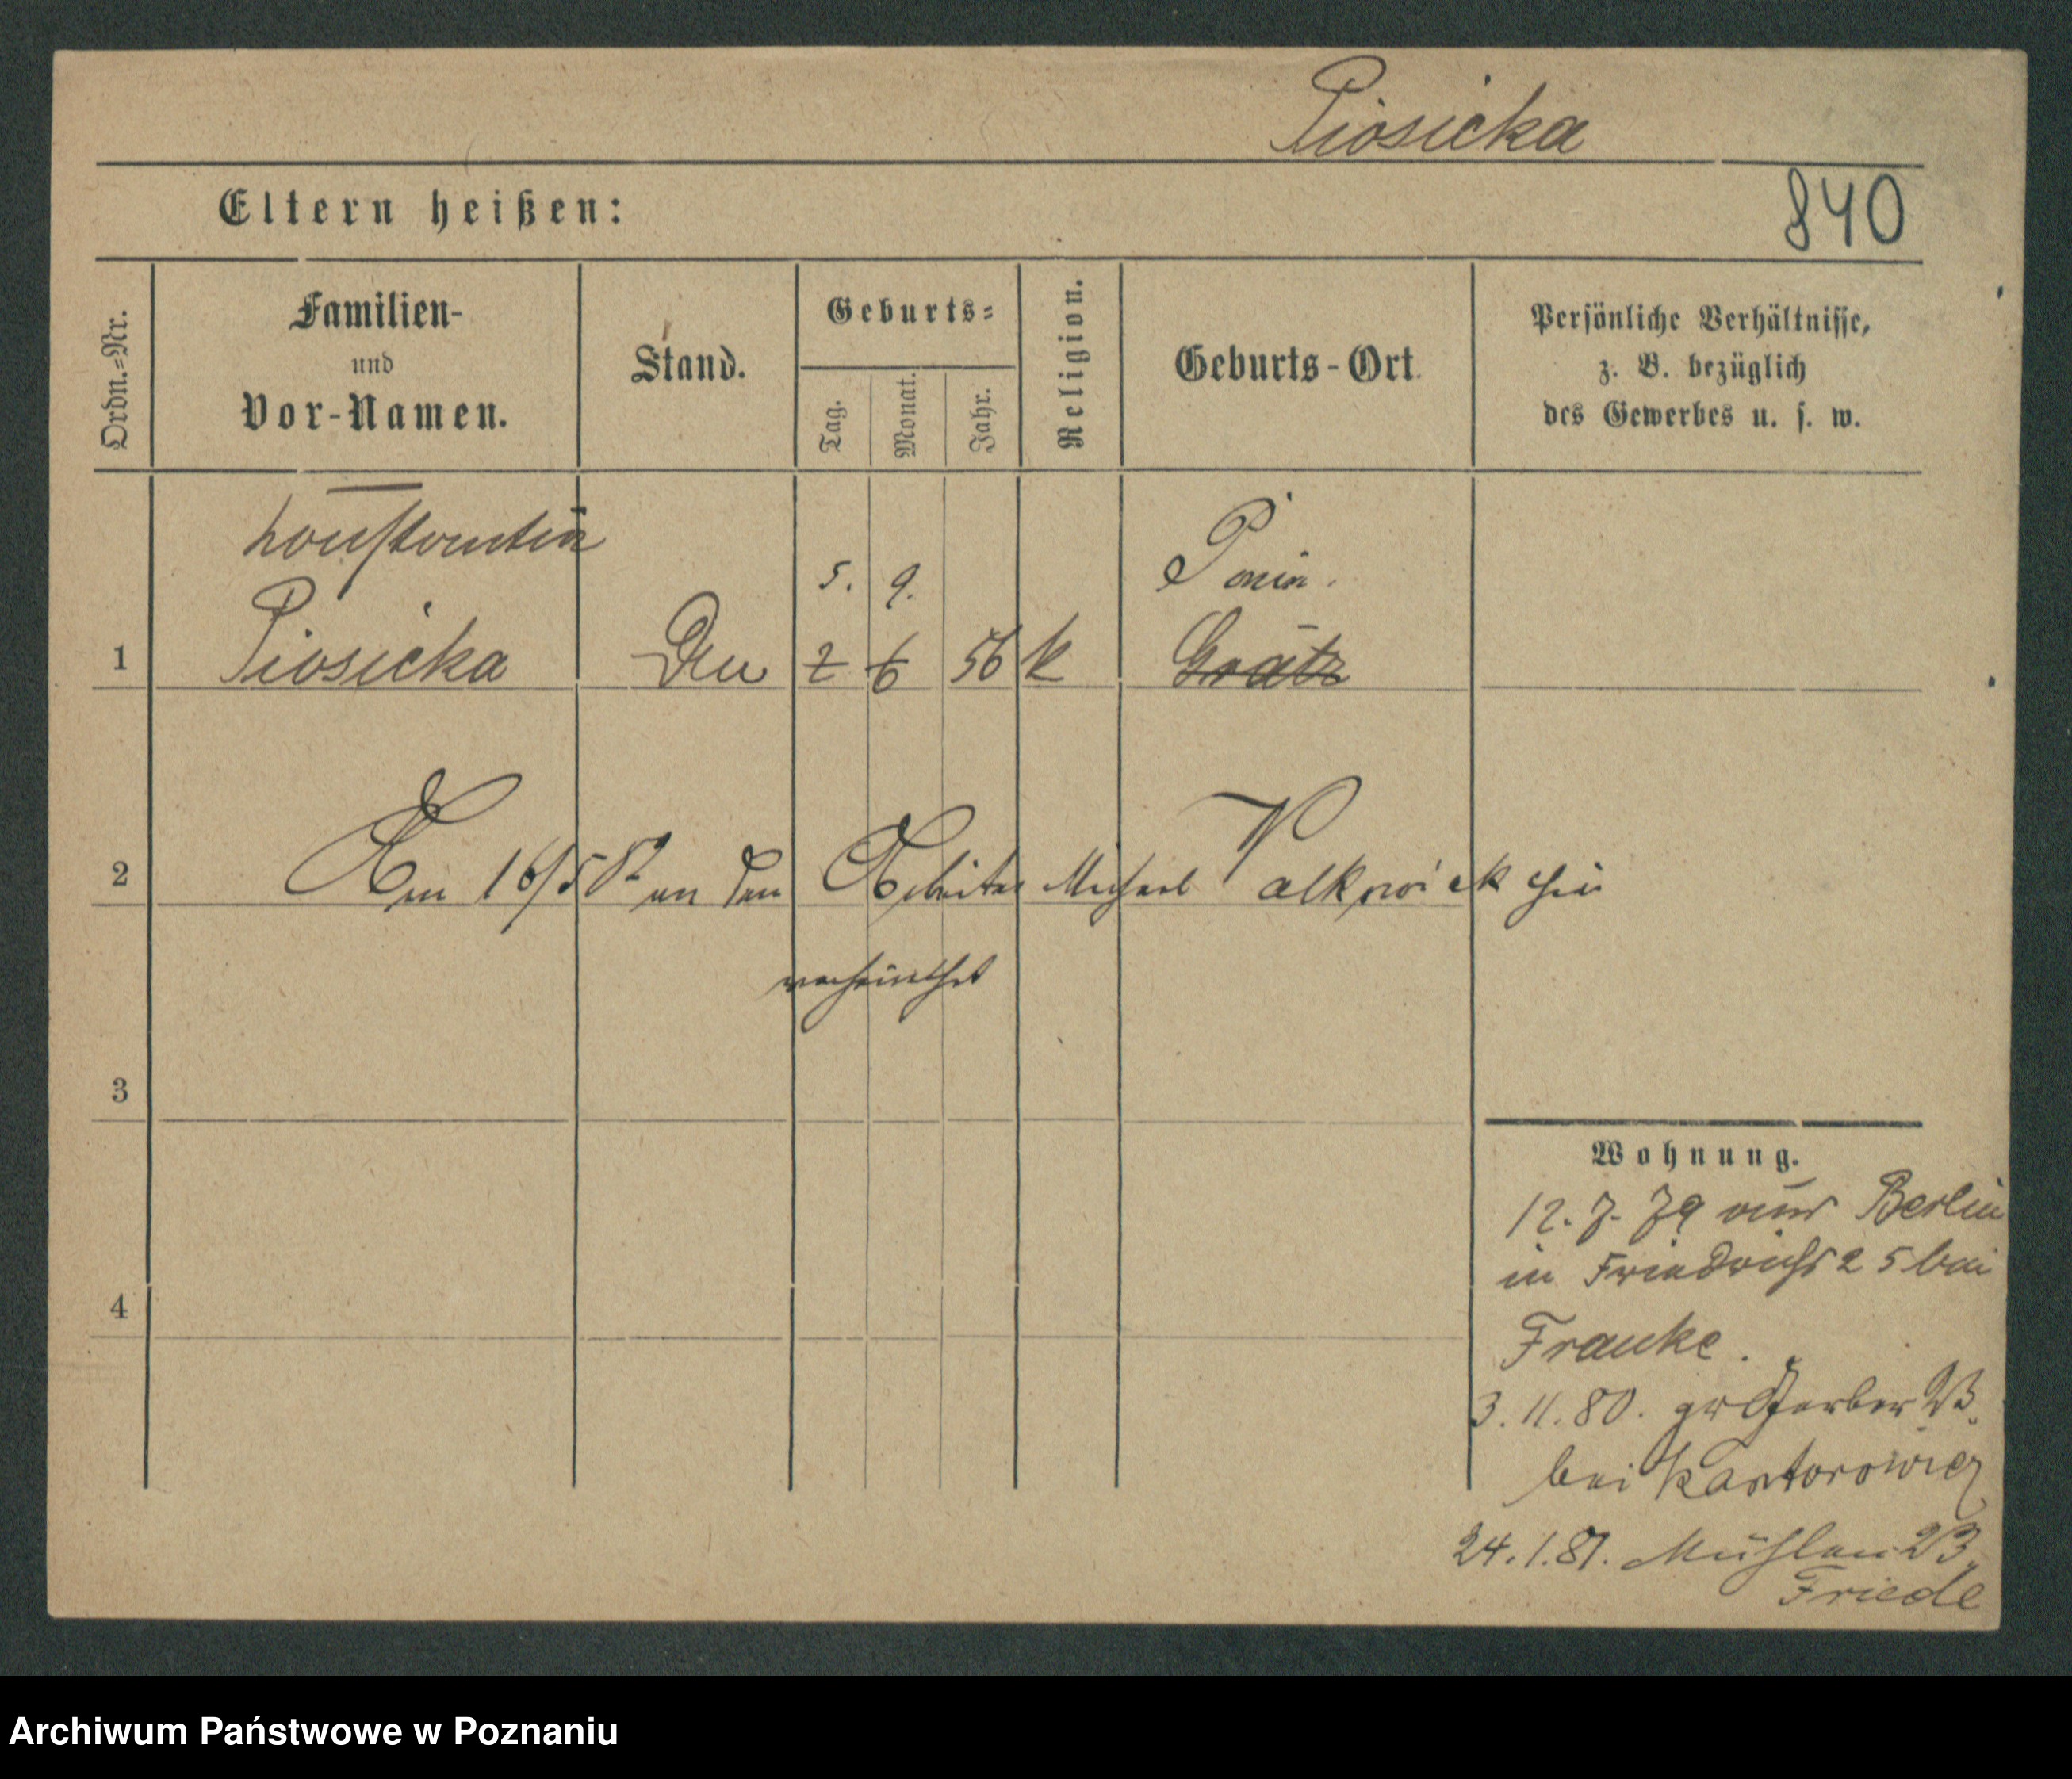 Piosicka
840
Eltern heißen:
Ordn.=Nr.
Familien-
und
Vor-Namen.
Stand.
Geburts=
Tag.
Monat.
Jahr.
Religion.
Geburts-Ort
Persönliche Verhältnisse,
z. B. bezüglich
des Gewerbes u. s. w.
Konstantia
5. 9. Ponin.
1 Piosicka 2 6 56 k Grätz
2 Am 16/5 82 an den Arbeiter Michael Walkowiak hier
verheirathet
3
4
Wohnung.
12. 7. 79 aus Berlin
in Friedrichs 25 bei
Franke.
3. 11. 80. gr Gerber
bei Kantorowicz
24. 1. 81. Mühlen
Friede
Archiwum Państwowe w Poznaniu